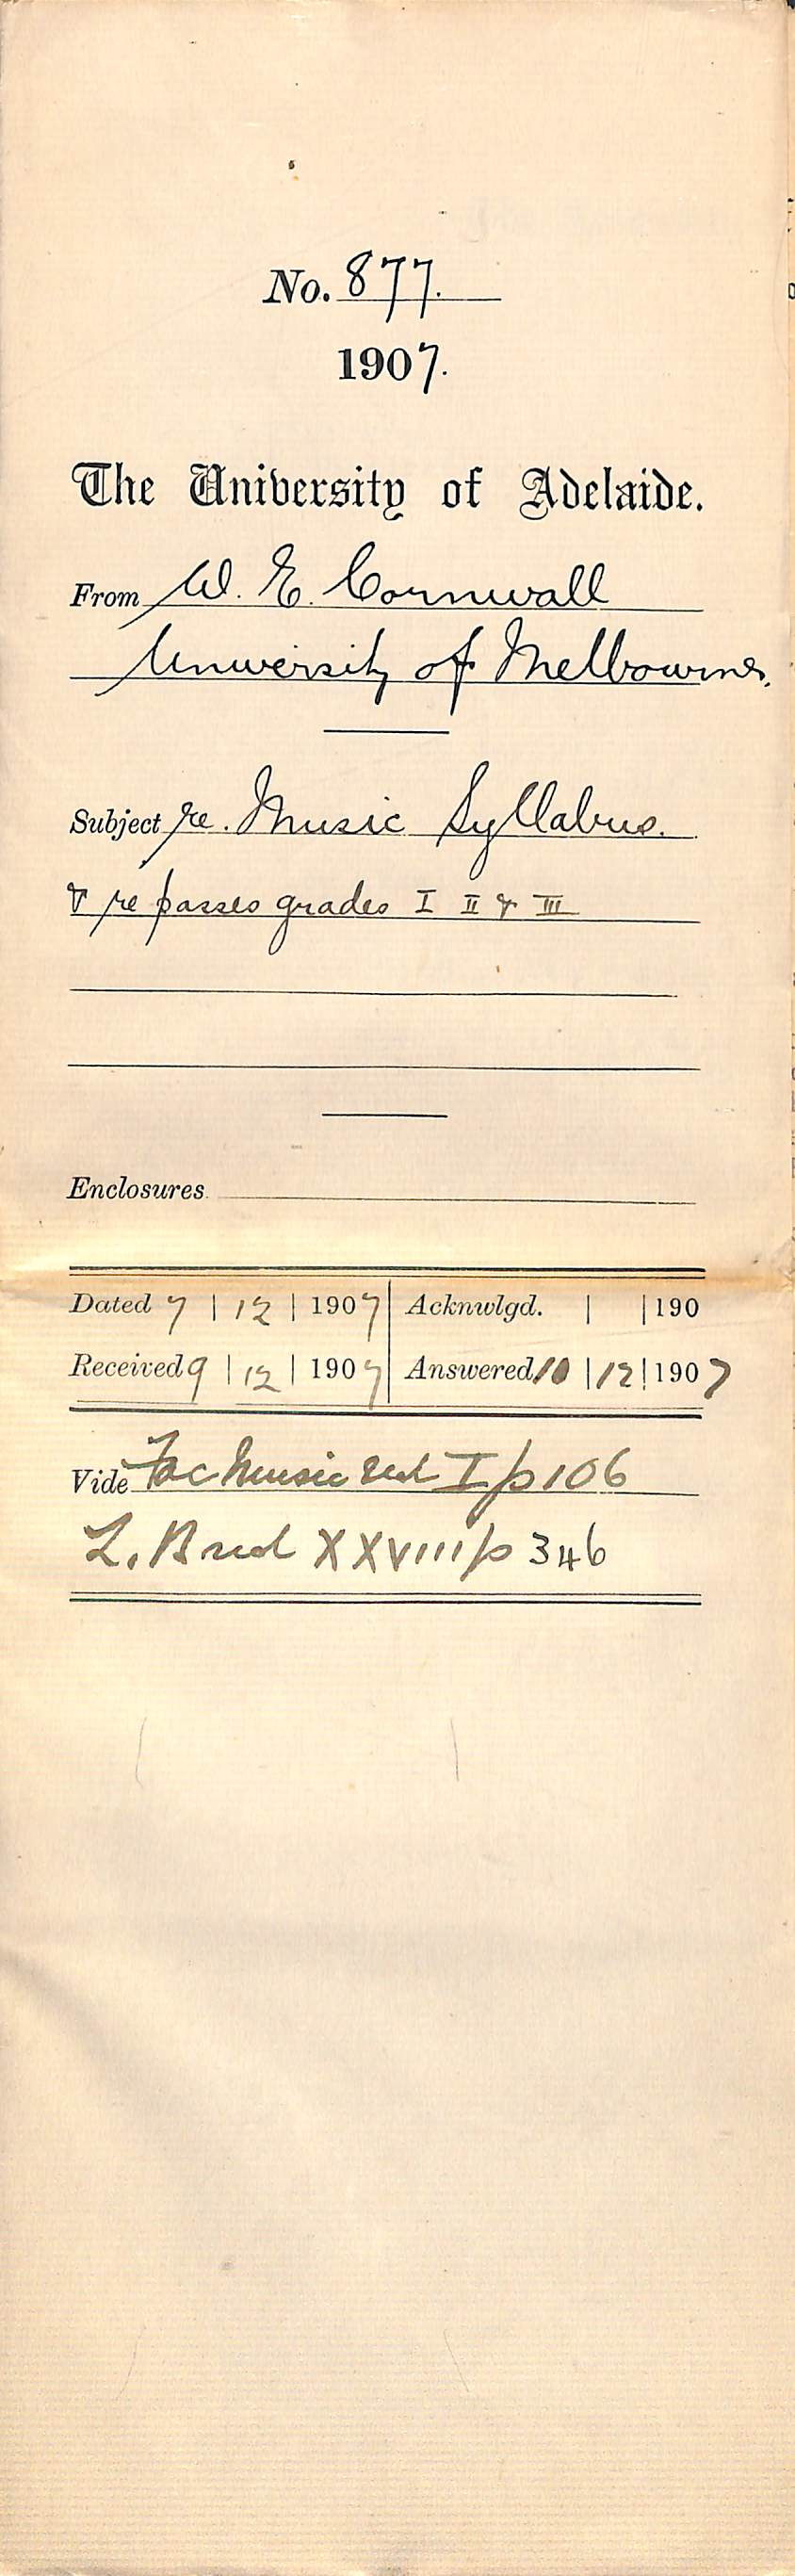 No. 877.
1907.
The University of Adelaide.
From W. E. Cornwall
University of Melbourne.
Subject re. Music Syllabus.
& re passes grades I II & III
Enclosures
Dated 7 | 12 | 1907 Acknwlgd. | | 190
Received 9 | 12 | 1907 Answered 10 | 12 | 1907
Vide Fac Music I p 106
L. B XXVIII p 346